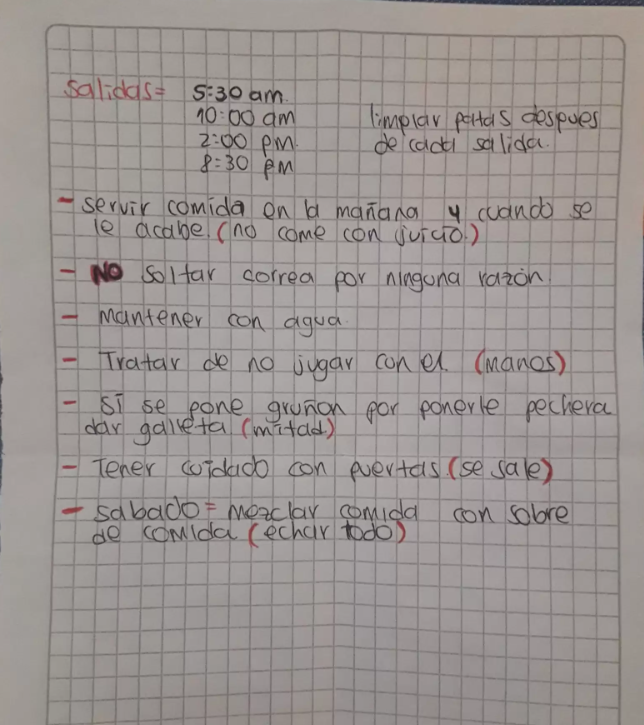 salidas= 5:30 am.
10:00 am
2:00 pm.
8:30 pm
limpiar patas despues
de cada salida.
- servir comida en la mañana y cuando se
le acabe (no come con juicio.)
- NO soltar correa por ninguna razón.
- Mantener con agua.
- Tratar de no jugar con el (manos)
- Si se pone gruñon por ponerle pechera
dar galleta (mitad)
- Tener cuidado con puertas (se sale)
- sabado = mezclar comida con sobre
de comida (echar todo)